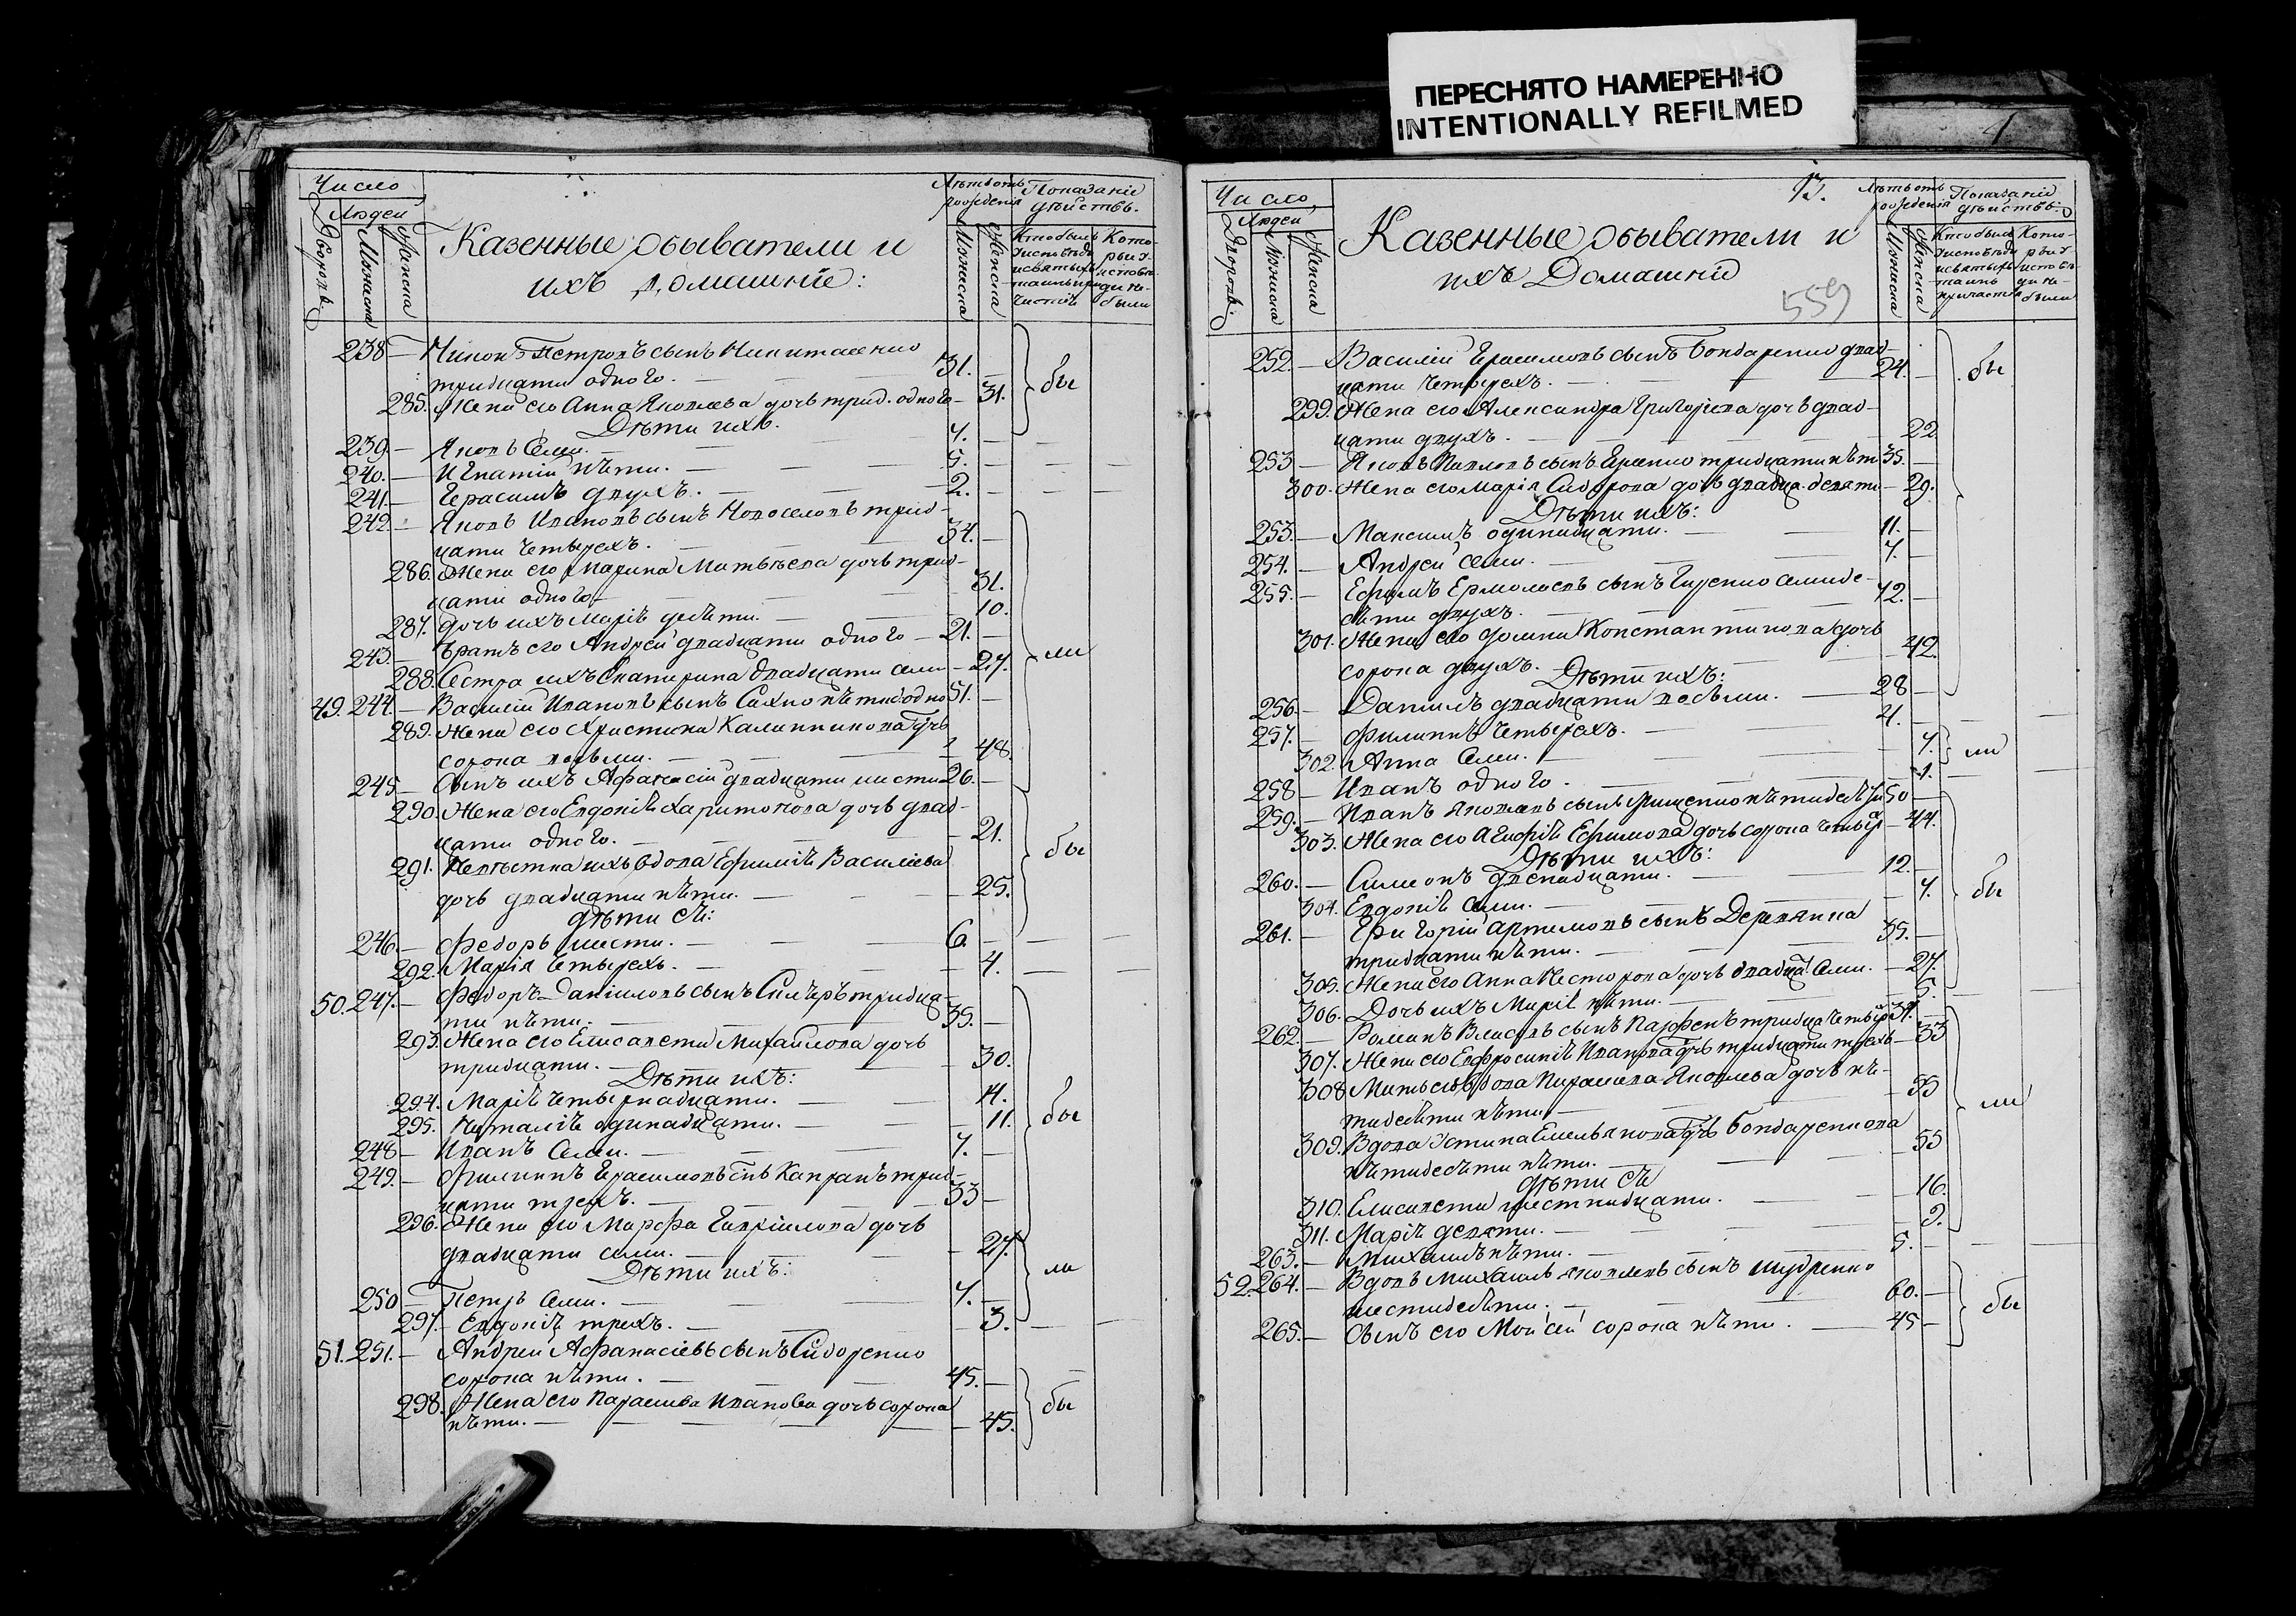 ПЕРЕСНЯТО НАМЕРЕННО
INTENTIONALLY REFILMED
Число
Людей
Дворовъ.
Мужеска
Женска
Казенные обыватели и
ихъ домашніе:
Лѣтъ отъ рожденія
Мужеска
Женска
Показаніе дѣйствъ.
238 — Никонъ Петровъ сынъ
тридцати одного. — 31.
285. Жена его Анна Яковлева дочь трид. одного — 31.
бы
Дѣти ихъ.
239. — Яковъ семи. — 7.
240. — Игнатій пѣти. — 5.
241. — Герасимъ двухъ. — 2.
242. — Яковъ Ивановъ сынъ Новоселовъ трид-
цати четырехъ. — 34.
286. Жена его Марина Матвѣева дочь трид-
цати одного — 31.
287. Дочь ихъ Маріѣ десѣти. — 10.
243. — Братъ его Андрей двадцати одного — 21.
288. Сестра ихъ Екатерина двадцати семи — 27.
ли
49. 244. — Василій Ивановъ сынъ Сахно 51.
289. Жена его Христина Калинникова дочь
сорока восьми. — 48
245 — Сынъ ихъ Афанасій двадцати шести 26.
290. Жена его Евдокіѣ Харитонова дочь двад-
цати одного. — 21.
бы
291. Невѣстка ихъ вдова Ефиміѣ Василіева
дочь двадцати пѣти. — 25.
дѣти еѣ:
246 — Федоръ шести. — 6.
292. Марія четырехъ. — 4.
50. 247. — Федоръ Даніиловъ сынъ тридца-
ти пѣти. — 35.
293. Жена его Елисавета Михайлова дочь
тридцати. — 30.
Дѣти ихъ:
294. Маріѣ четырнадцати. — 14.
295. Наталіѣ одинадцати. — 11.
бы
248 — Иванъ семи. — 7.
249. — Филиппъ Герасимовъ сынъ трид-
цати трехъ. — 33
296. Жена его Марфа Гавріилова дочь
двадцати семи. — 27.
Дѣти ихъ:
ли
250 — Петръ семи. — 7.
297. Евдокіѣ трехъ. — 3.
51. 251. — Андрей Афанасіевъ сынъ Сидоренко
сорока пѣти. — 45.
298. Жена его Параскева Иванова дочь сорока
пѣти. — 45.
бы
13.
Число
Людей
Дворовъ.
Мужеска
Женска
Казенные обыватели и
ихъ Домашніе
559
Лѣтъ отъ рожденія
Мужеска
Женска
Показаніе дѣйствъ.
252. — Василій Герасимовъ сынъ Бондаренко двад-
цати четырехъ. — 24.
бы
299. Жена его Александра Григорьева дочь двад-
цати двухъ. — 22.
253 — Яковъ Павловъ сынъ тридцати пѣти 35.
300. Жена его Марія Сидорова дочь двадца. девяти — 29.
Дѣти ихъ:
253. — Максимъ одинадцати. — 11.
254. — Андрей семи. — 7.
255. — Ефимъ Ермолаевъ сынъ семиде-
сѣти двухъ. — 72.
301. Жена его Домна Константинова дочь
сорока двухъ. — 42.
Дѣти ихъ:
256. — Даніилъ двадцати восьми. — 28
257. — Филиппъ четырехъ. — 4.
302. Анна семи. — 7.
ли
258 — Иванъ одного. — 1.
259. — Иванъ Яковлевъ сынъ пѣтидесѣти 50
303. Жена его Агафіѣ Ефимова дочь сорока четыр — 44.
Дѣти ихъ:
260. — Симеонъ двенадцати. — 12.
304. Евдокіѣ семи. — 7.
бы
261. — Григорій Артемовъ сынъ Деревянка
тридцати пѣти. — 35.
305. Жена его Анна Несторова дочь двадца. семи. — 27.
306. Дочь ихъ Маріѣ пѣти. — 5.
262. — Романъ Власовъ сынъ тридца. четыре 34.
307. Жена его Евфросиніѣ Иванова дочь тридцати трехъ — 33
308 Мать его вдова Параскева Яковлева дочь пѣ-
тидесѣти пѣти — 55
ли
309. Вдова Устина Емельянова дочь Бондаренкова
пѣтидесѣти пѣти. — 55
дѣти еѣ
310. Елисавета шестнадцати. — 16.
311. Маріѣ девяти. — 9.
263. — Михаилъ пѣти. — 5.
52. 264. — Вдовъ Михаилъ Яковлевъ сынъ
шестидесѣти. — 60.
бы
265. — Сынъ его Мойсей сорока пѣти. — 45